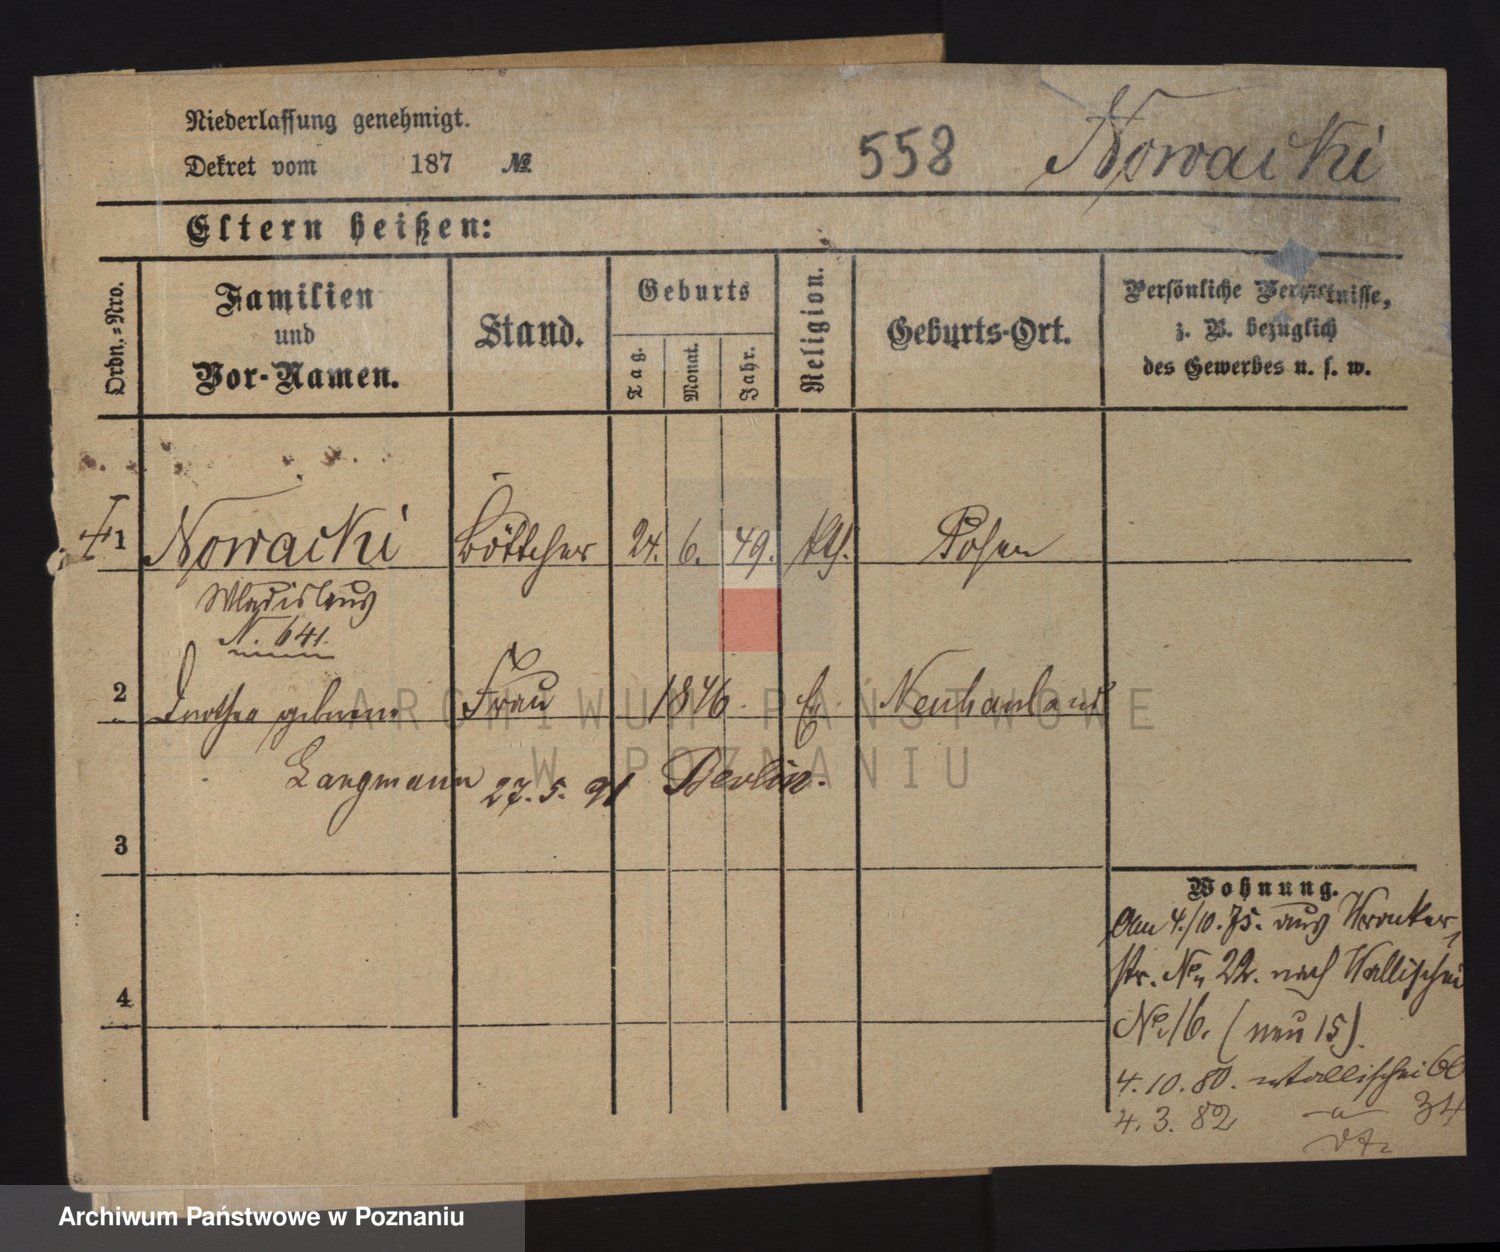 Niederlassung genehmigt.
Dekret vom 187 №
558 Nowacki
Eltern heißen:
Ordn.-Nro.
Familien
und
Vor-Namen.
Stand.
Geburts
Tag.
Monat.
Jahr.
Religion.
Geburts-Ort.
Persönliche Verhältnisse,
z. B. bezüglich
des Gewerbes u. s. w.
1 Nowacki Böttcher 24. 6. 49. kth. Posen
Wladislaus
N. 641.
2 Dorothea geborne Frau 1846. Ev. Neuhauland
Langmann 27. 5. 91 Berlin.
3
4
Wohnung.
Am 4./10. 75. aus Wronker
str. No 22. nach Wallischei
No 16. (neu 15).
4. 10. 80. Wallischei 60
4. 3. 82 34
ARCHIWUM PAŃSTWOWE
W POZNANIU
Archiwum Państwowe w Poznaniu